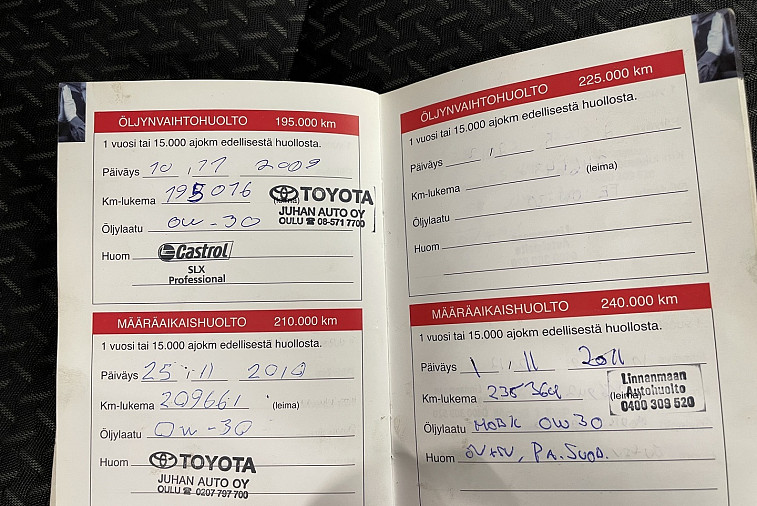 ÖLJYNVAIHTOHUOLTO 195.000 km
1 vuosi tai 15.000 ajokm edellisestä huollosta.
Päiväys 10 . 11 2009
Km-lukema 195016 (leima)
TOYOTA
JUHAN AUTO OY
OULU ☎ 08-571 7700
Öljylaatu 0W-30
Huom Castrol
SLX
Professional
MÄÄRÄAIKAISHUOLTO 210.000 km
1 vuosi tai 15.000 ajokm edellisestä huollosta.
Päiväys 25 . 11 2010
Km-lukema 209661 (leima)
Öljylaatu 0W-30
Huom TOYOTA
JUHAN AUTO OY
OULU ☎ 0207 797 700
ÖLJYNVAIHTOHUOLTO 225.000 km
1 vuosi tai 15.000 ajokm edellisestä huollosta.
Päiväys
Km-lukema (leima)
Öljylaatu
Huom
MÄÄRÄAIKAISHUOLTO 240.000 km
1 vuosi tai 15.000 ajokm edellisestä huollosta.
Päiväys 1 . 11 2011
Km-lukema (leima)
Linnanmaan
Autohuolto
0400 309 520
Öljylaatu 0W30
Huom